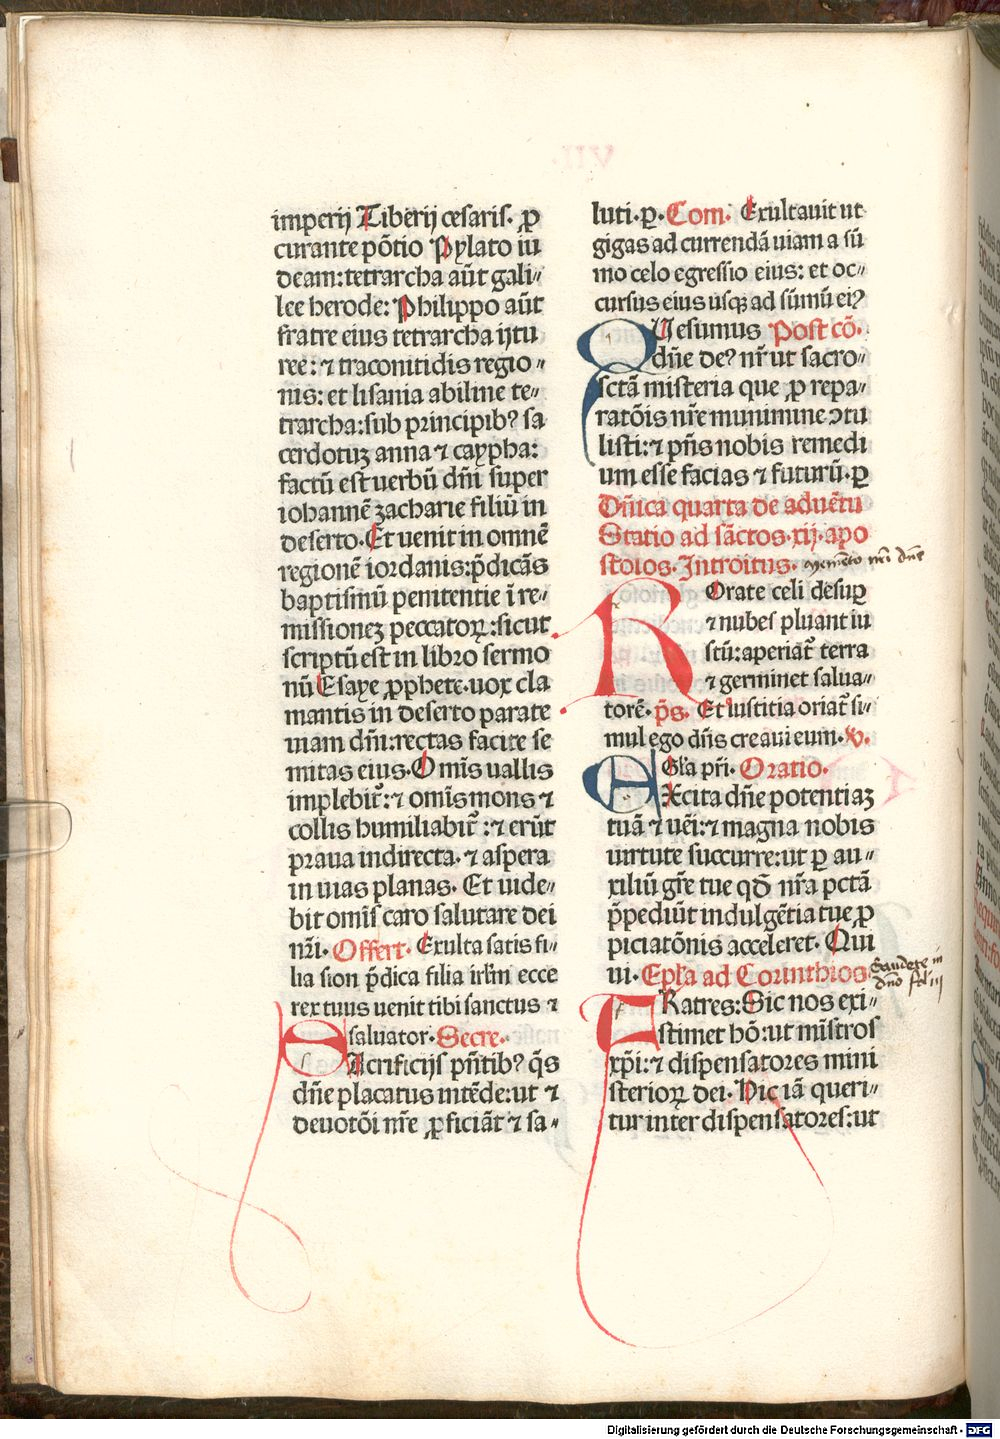 imperij Tiberij cesaris. ꝓ
curante põtio Pylato iu
deam:tetrarcha aũt gali//
lee herode: Philippo aũt
fratre eius tetrarcha ijtu
ree: ⁊ traconitidis regio//
nis: et lisania abiline te-
trarcha:sub principib? sa
cerdotuʒ anna ⁊ caypha:
factũ est uerbũ dñi super
iohannẽ zacharie filiũ in
deserto. Et uenit in omnẽ
regionẽ iordanis:p̃dicãs
baptismũ penitentie ĩ re-
missioneʒ peccatoꝝ:sicut
scriptũ est in libro sermo
nũ Esaye ꝓphete. uox cla
mantis in deserto parate
uiam dñi:rectas facite se
mitas eius. Om̃is uallis
implebit̃: ⁊ om̃is mons ⁊
collis humiliabit̃: ⁊ erũt
praua in directa. ⁊ aspera
in uias planas. Et uide-
bit om̃is caro salutare dei
nr̃i. Offert. Exulta satis fi//
lia sion p̃dica filia irl̃m ecce
rex tuus uenit tibi sanctus ⁊
saluator. Secre.
SAcrificijs pñtib? q̃s
dñe placatus intẽde:ut ⁊
deuotõi nr̃e ꝓficiãt ⁊ sa-
luti. ꝑ. Com. Exultauit ut
gigas ad currendã uiam a sũ
mo celo egressio eius: et oc-
cursus eius usqꝫ ad sũmũ ei?
QUesumus Post cõ.
dñe de? nr̃ ut sacro-
sctã misteria que ꝓ repa-
ratõis nr̃e munimine ↄtu
listi: ⁊ pñs nobis remedi
um esse facias ⁊ futurũ. ꝑ
Dñica quarta de aduẽtu
Statio ad sãctos. xij. apo
stolos. Introitus. memẽto nri dñe
ROrate celi desuꝑ
⁊ nubes pluant iu
stũ: aperiat̃ terra
⁊ germinet salua//
torẽ. p̃s. Et iustitia oriat̃ si//
mul ego dñs creaui eum. v.
Gl̃a pr̃i. Oratio.
EXcita dñe potentiaʒ
tuã ⁊ uẽi: ⁊ magna nobis
uirtute succurre:ut ꝑ au//
xiliũ gr̃e tue qđ nr̃a pctã
p̃pediũt indulgẽtia tue ꝓ
piciatõnis acceleret. Qui
ui. Epl̃a ad Corinthios. Gaudete in
dño fol iij
FRatres:Sic nos exi//
stimet hõ:ut mĩstros
xp̃i: ⁊ dispensatores mini
sterioꝝ dei. Hic iã queri//
tur inter dispensatores:ut
Digitalisierung gefördert durch die Deutsche Forschungsgemeinschaft - DFG